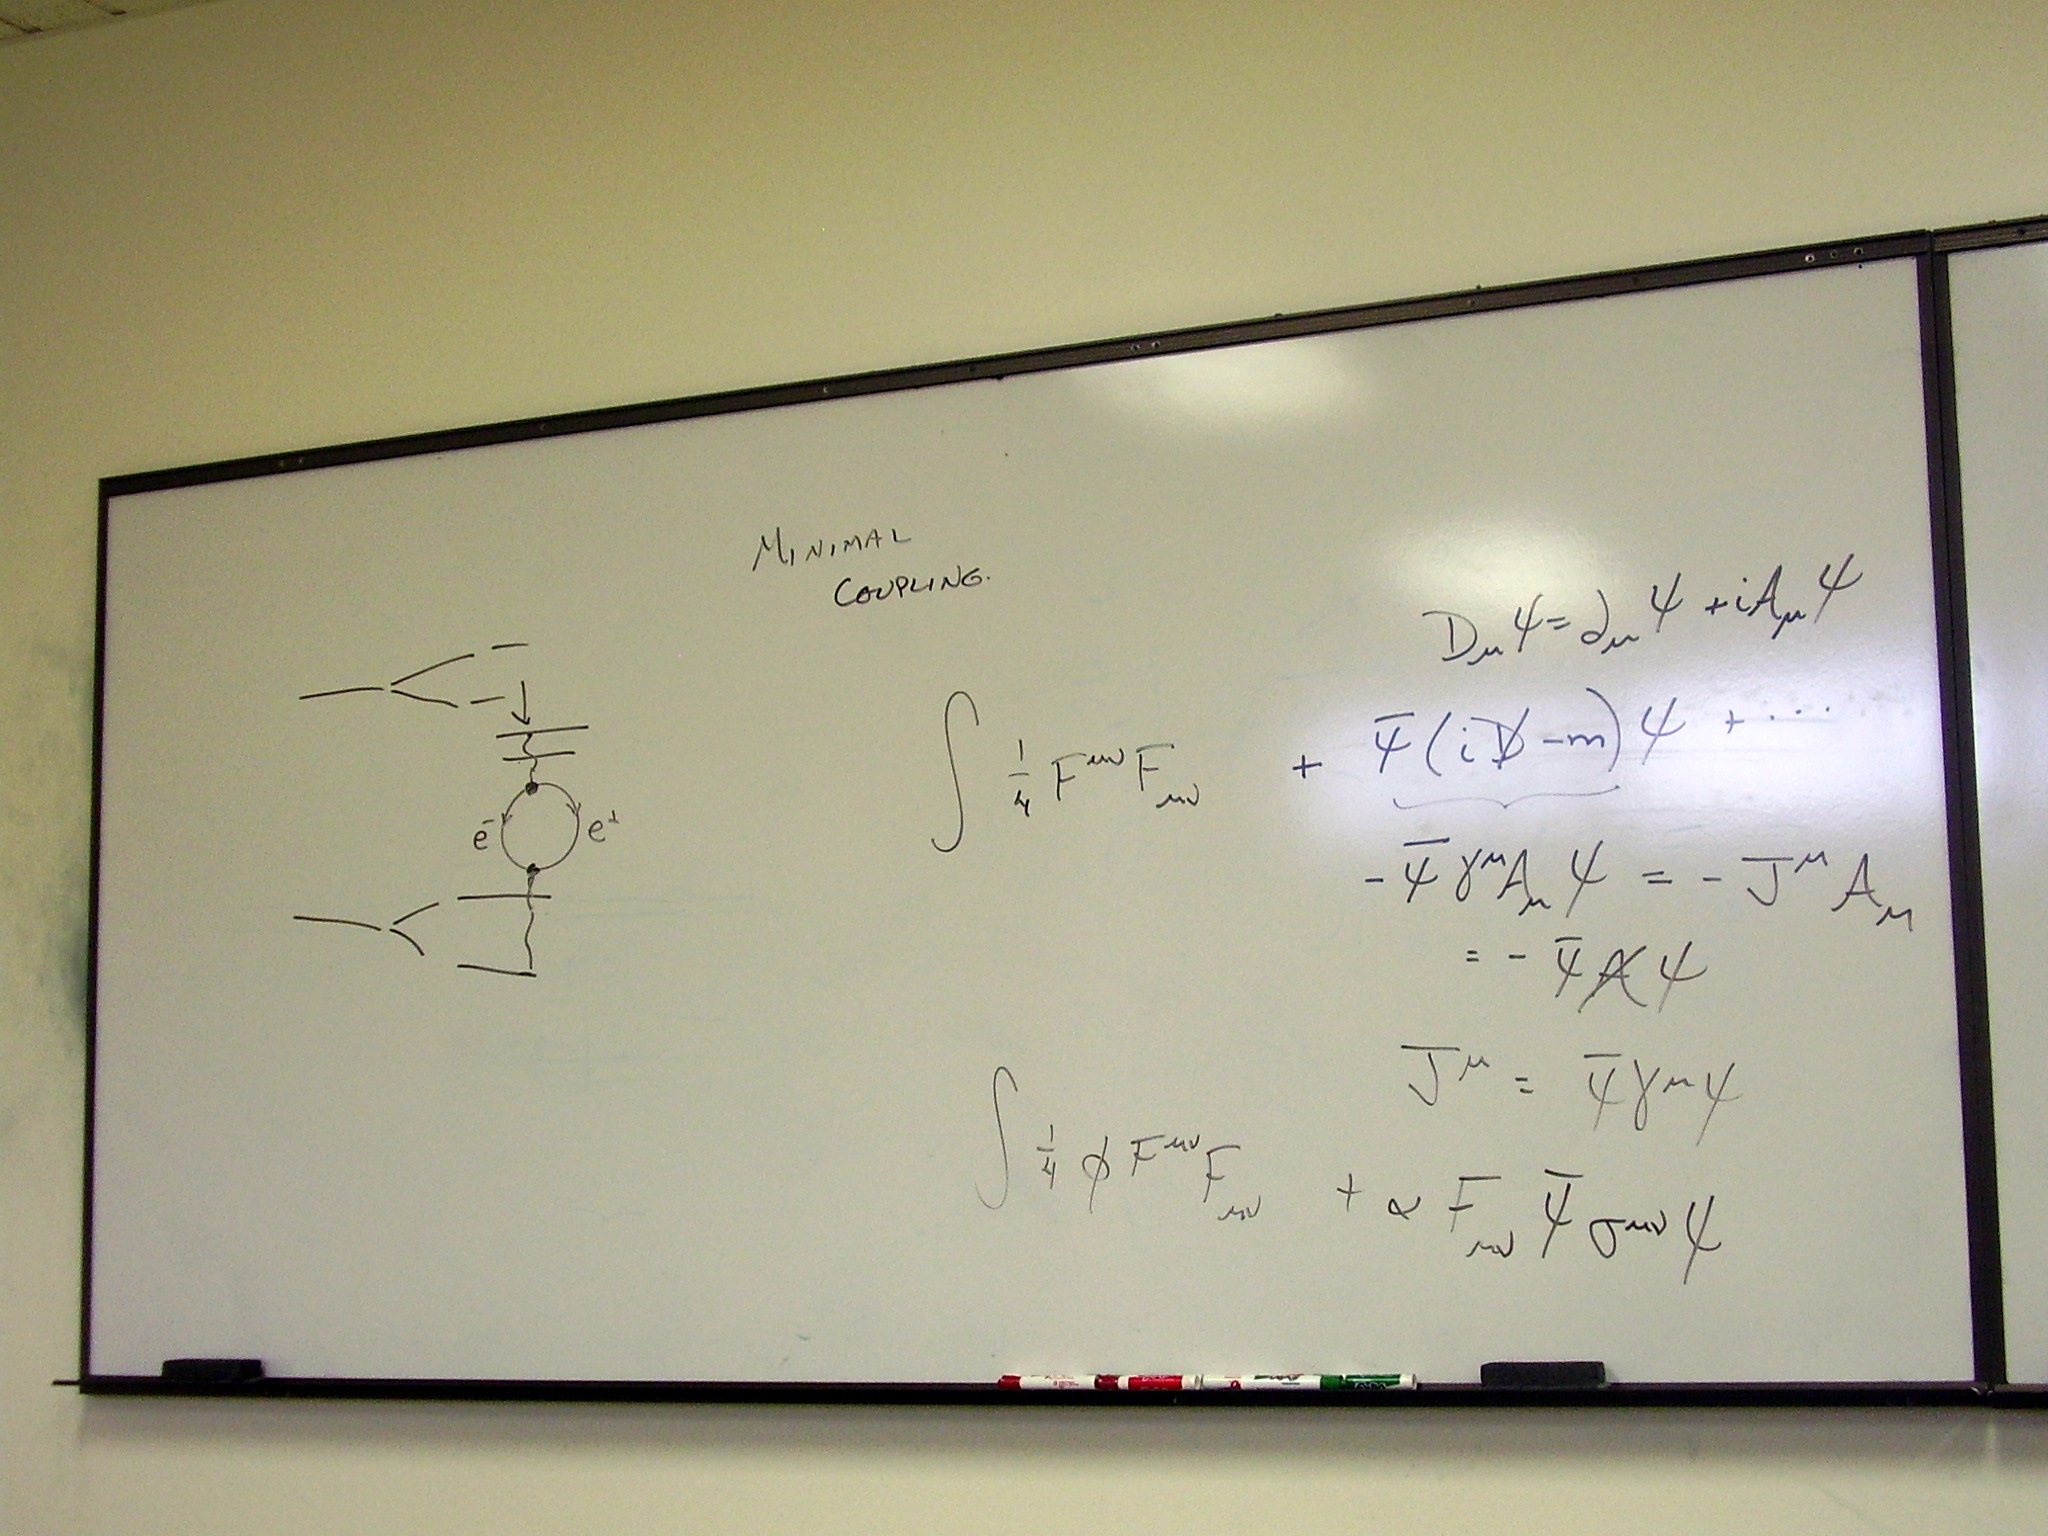 MINIMAL
COUPLING.
D_μ ψ = ∂_μ ψ + iA_μ ψ
∫ 1/4 F^{μν} F_{μν} + ψ̄ (iD̸ - m) ψ + ...
- ψ̄ γ^μ A_μ ψ = - J^μ A_μ
= - ψ̄ A̸ ψ
J^μ = ψ̄ γ^μ ψ
∫ 1/4 φ F^{μν} F_{μν} + α F_{μν} ψ̄ σ^{μν} ψ
e⁻ e⁺